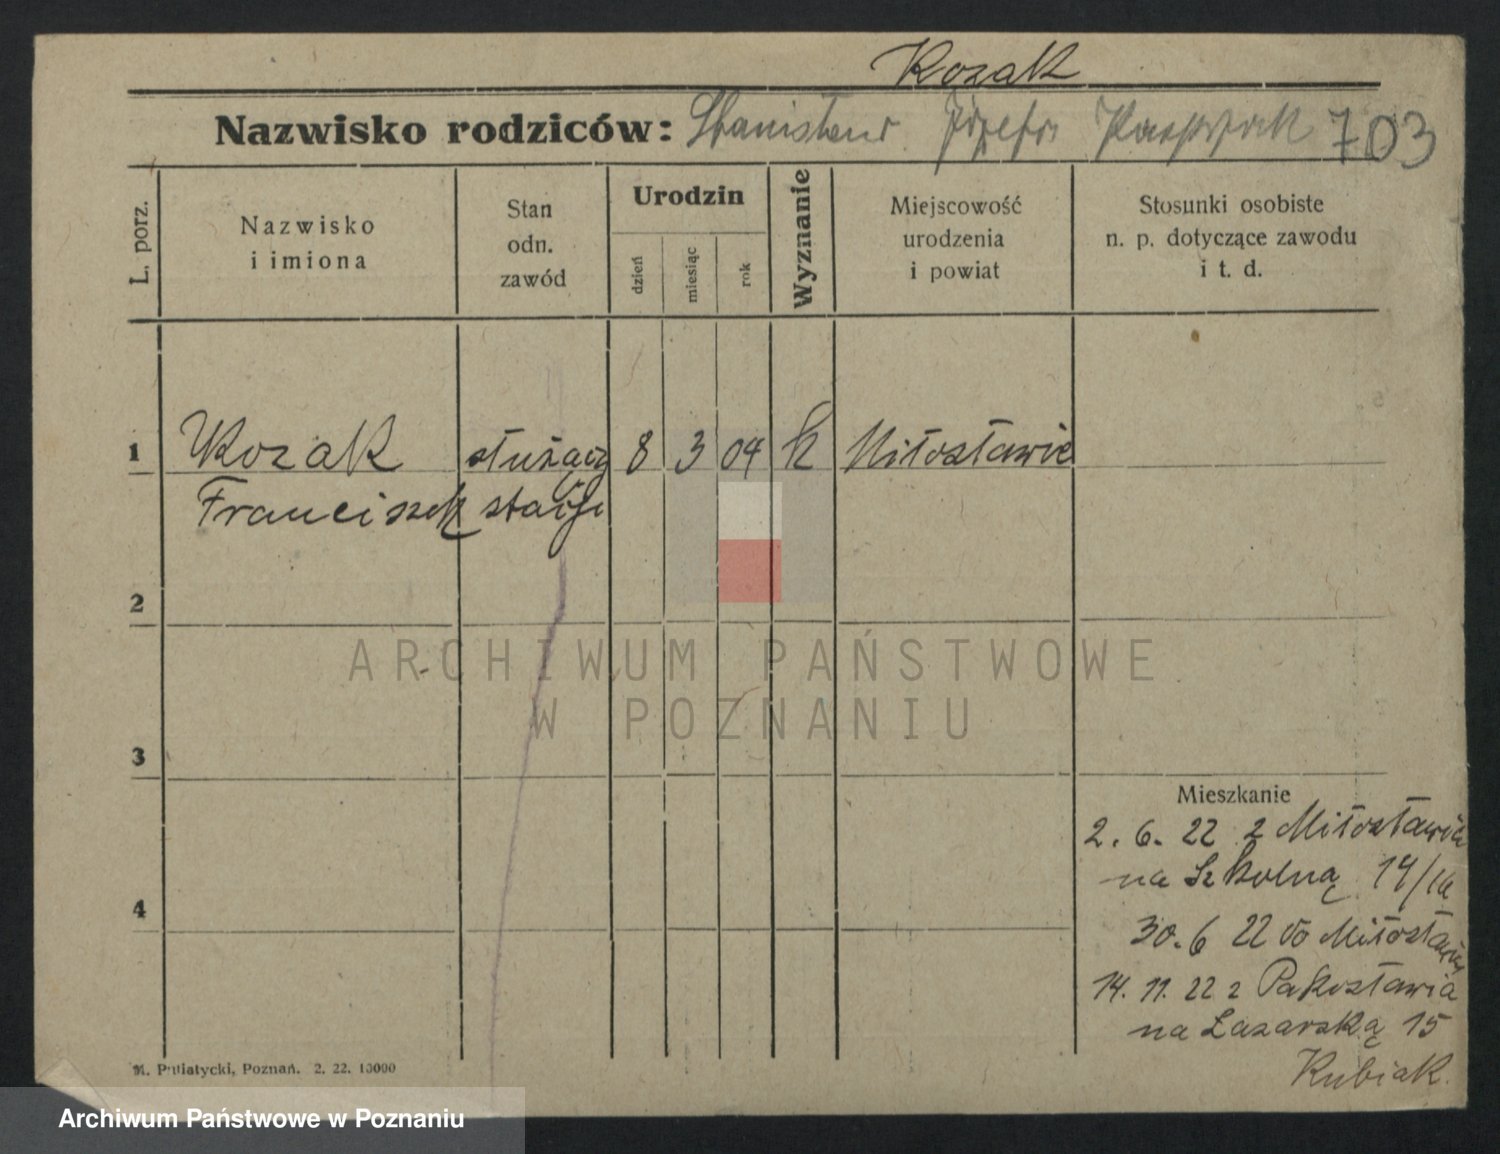 Kozak
Nazwisko rodziców: Stanisław Józefa Kasprzak 703
L. porz.
Nazwisko
i imiona
Stan
odn.
zawód
Urodzin
dzień
miesiąc
rok
Wyznanie
Miejscowość
urodzenia
i powiat
Stosunki osobiste
n. p. dotyczące zawodu
i t. d.
1 Kozak służący 8 3 04 k Miłosławie
Franciszek
2
3
4
ARCHIWUM PAŃSTWOWE
W POZNANIU
Mieszkanie
2. 6. 22 z Miłosławia
na Szkolną 14/
30. 6 22 do Miłosławia
14. 11. 22 z Pakosławia
na Łazarską 15
Kubiak.
M. Putiatycki, Poznań. 2. 22. 10000
Archiwum Państwowe w Poznaniu